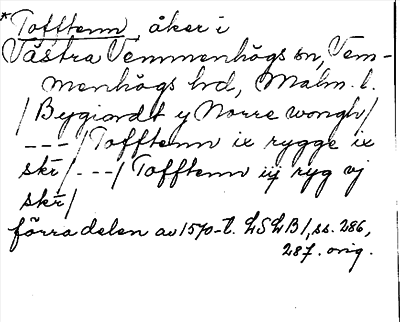 *Tofftenn, åker i
Västra Vemmenhögs sn, Vem-
menhögs hd, Malm. l.
/Bygiordt y Norre wongh/
---/Tofftenn ix rygge ix
skr̄/---/Tofftenn iij ryg vj
skr̄/
förra delen av 1570-t. LSLB 1, ss. 286,
287. orig.